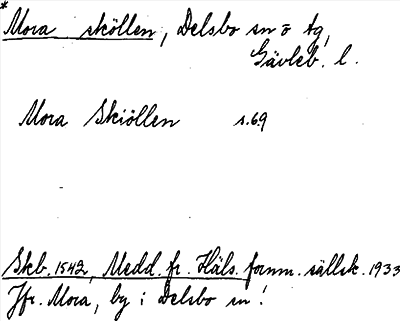 *Mora sköllen, Delsbo sn o tg,
Gävleb. l.
Mora Skiöllen s.69
Skb. 1542, Medd. fr. Häls. fornm. sällsk. 1933
Jfr. Mora, by i Delsbo sn!